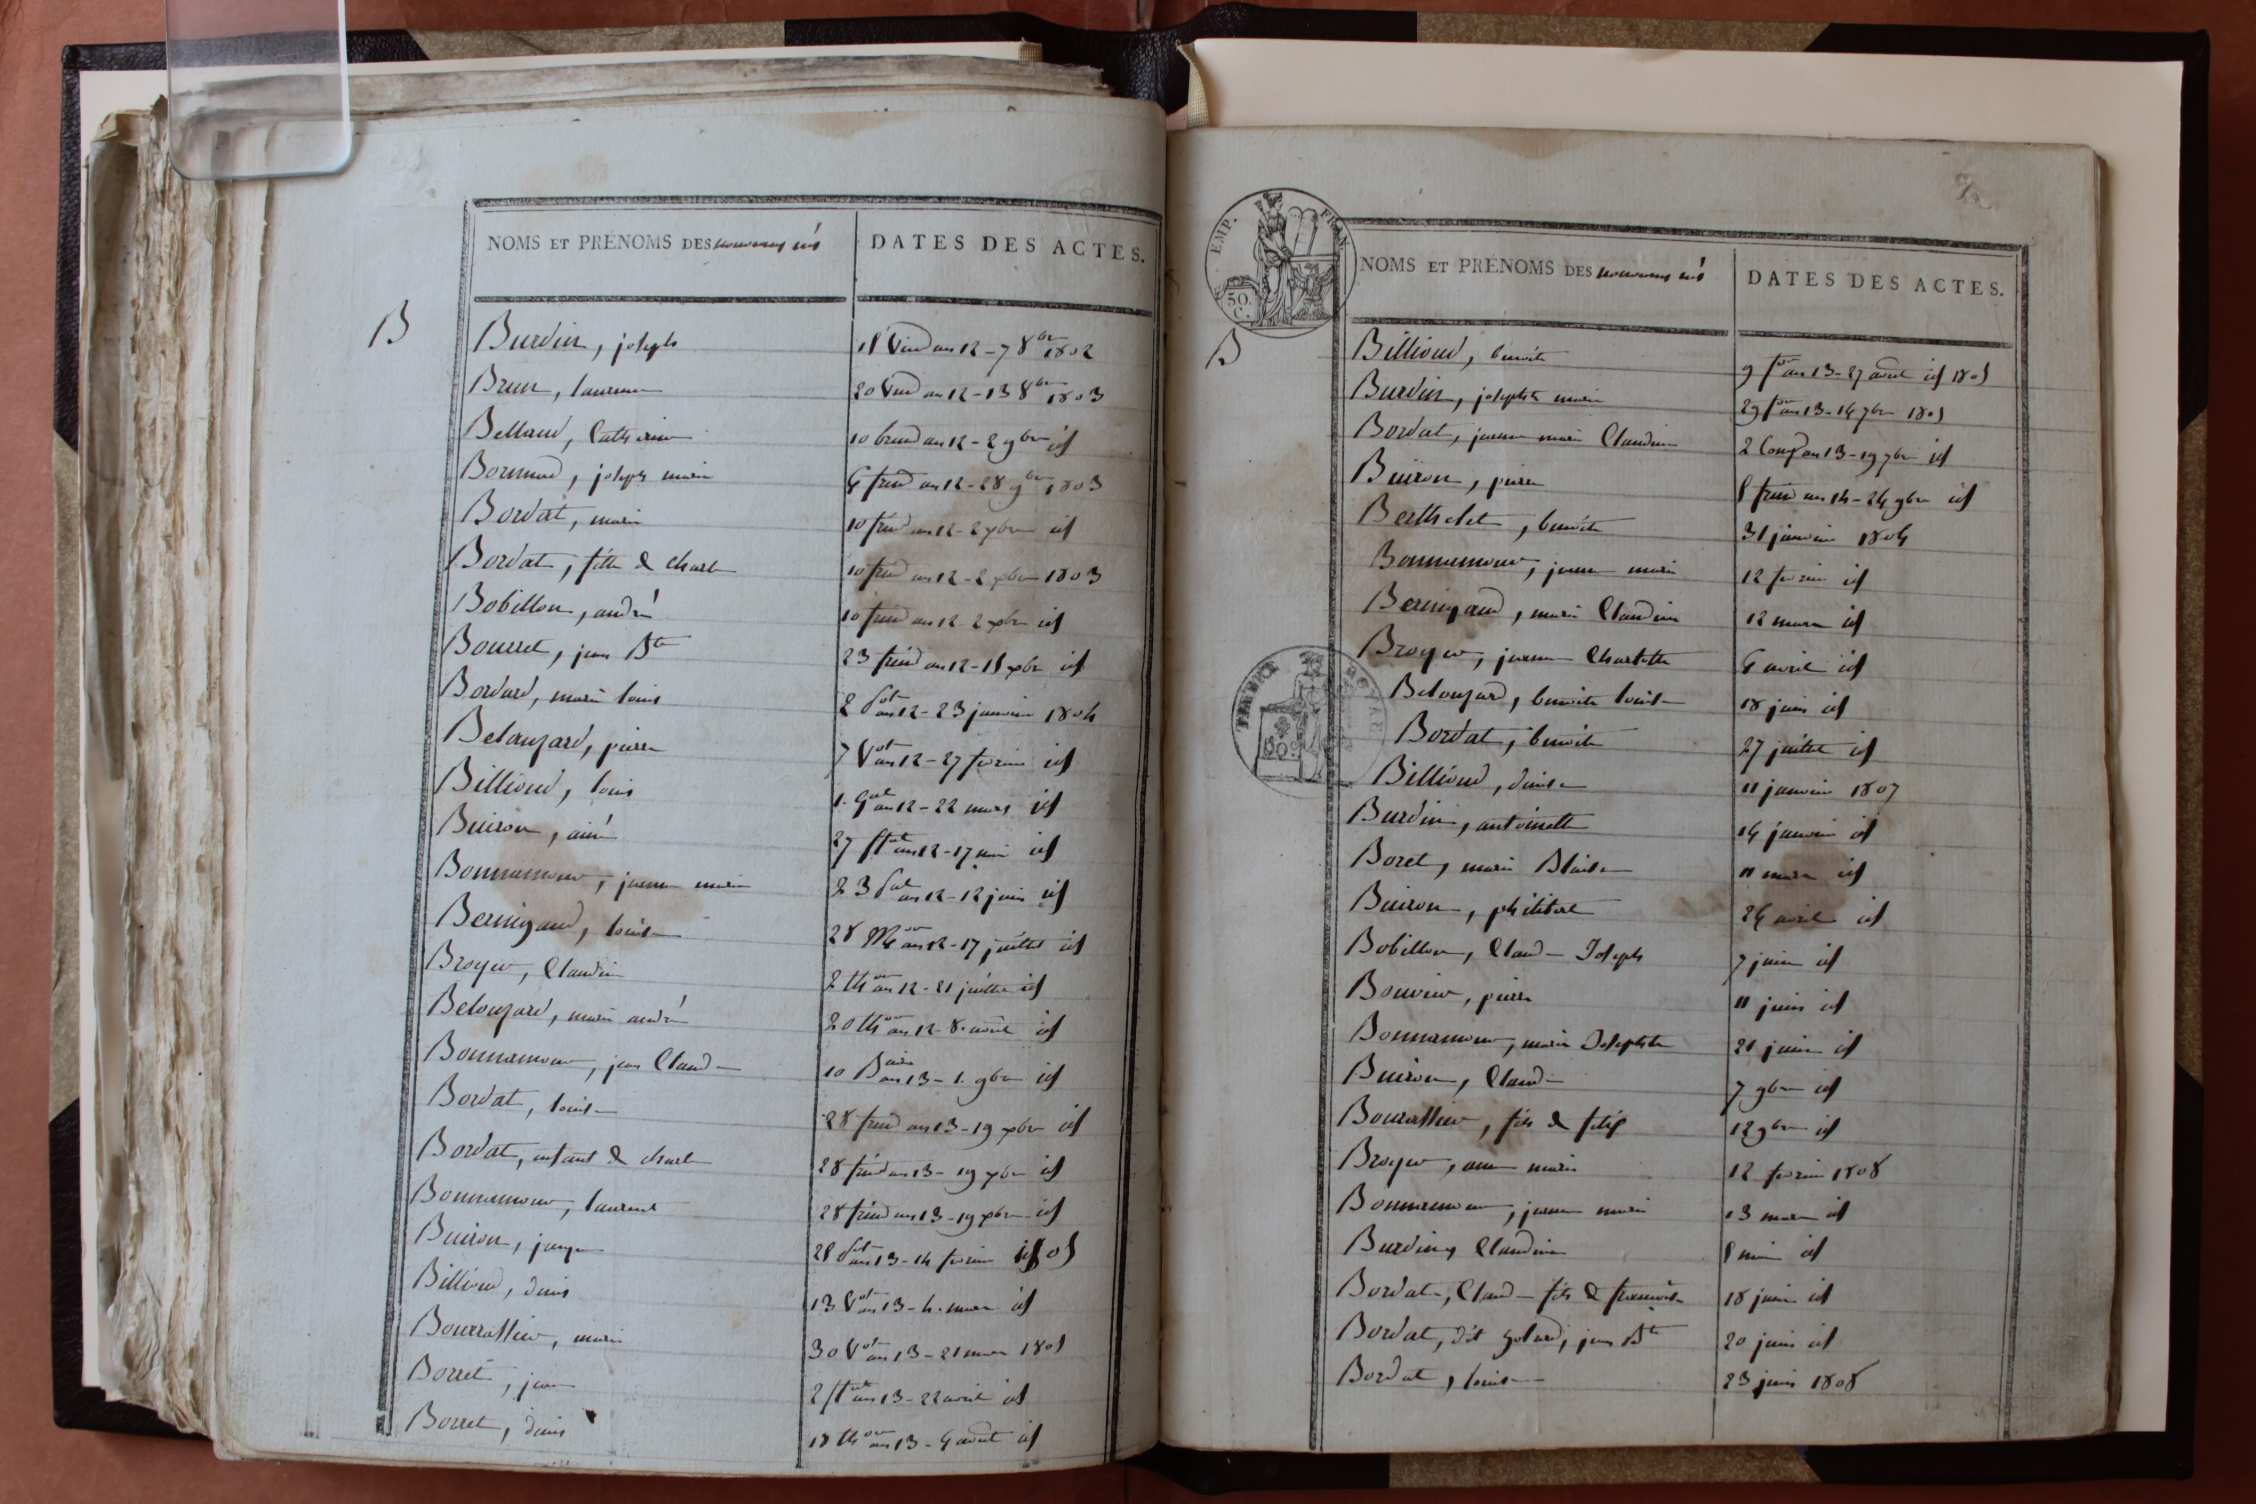 NOMS ET PRÉNOMS DES nouveaux nés
DATES DES ACTES.
B
Burdin, joseph
15 Vind an 12 - 7 8bre 1802
Brun, laurence
20 Vind an 12 - 13 8bre 1803
Belland, Catherine
10 brum an 12 - 2 9bre id
joseph marie
6 frim an 12 - 28 9bre 1803
Bordat, marie
10 frim an 12 - 2 xbre id
Bordat, fille de charle
10 frim an 12 - 2 xbre 1803
Bobillon, andré
10 frim an 12 2 xbre id
Bourret, jean Bte
23 frim an 12 - 15 xbre id
Bordard, marie louis
2 an 12 - 23 janvier 1804
Belouzard, pierre
7 Vot an 12 - 27 fevrier id
Billioud, louis
1. Gal an 12 - 22 mars id
Buiron, aimé
27 an 12 - 17 mai id
Bonnamour, jeanne marie
23 an 12 - 12 juin id
Bernigaud, louise
28 an 12 - 17 juillet id
Broyer, Claudine
2 thor an 12 - 21 juillet id
Belouzard, marie andré
20 thor an 12 - 8. août id
Bonnamour, jean Claude
10 Baire an 13 - 1. 9bre id
Bordat, louise
28 frim an 13 - 19 xbre id
Bordat, enfant de charle
28 frim an 13 - 19 xbre id
Bonnamour, laurent
28 frim an 13 - 19 xbre id
Buiron,
25 an 13 - 14 fevrier 1805
Billioud, denis
13 Vot an 13 - 4. mars id
Bourrassier, marie
30 Vot an 13 - 21 mars 1805
Borret, jean
2 an 13 - 22 avril id
Borret, denis
18 thor an 13 - 6 août id
EMP. FRAN
50. C.
NOMS ET PRÉNOMS DES nouveaux nés
DATES DES ACTES.
B
Billioud, benoite
9 an 13 - 27 août id 1805
Burdin, josephte marie
29 an 13 - 16 7bre 1805
Bordat, jeanne marie Claudine
2 Comp an 13 - 19 7bre id
Buiron, pierre
frim an 14 - 24 9bre id
Berthelet, benoite
31 janvier 1806
Bonnamour, jeanne marie
12 fevrier id
Bernigaud, marie Claudine
12 mars id
Broyer, jeanne Charlotte
6 avril id
TIMBRE ROYAL
Belouzard, benoite louise
18 juin id
Bordat, benoite
27 juillet id
Billioud, denise
11 janvier 1807
Burdin, antoinette
14 janvier id
Boret, marie Blaise
11 mars id
Buiron, philibert
24 avril id
Bobillon, Claude Joseph
7 juin id
Bouvier, pierre
11 juin id
Bonnamour, marie Josephte
21 juin id
Buiron, Claude
7 9bre id
Bourrassier, fils de felix
12 9bre id
Broyer, anne marie
12 fevrier 1808
Bonnamour, jeanne marie
13 mars id
Burdin, Claudine
mai id
Bordat, Claude fils de francoise
18 juin id
Bordat, dit jean Bte
20 juin id
Bordat, louise
23 juin 1808